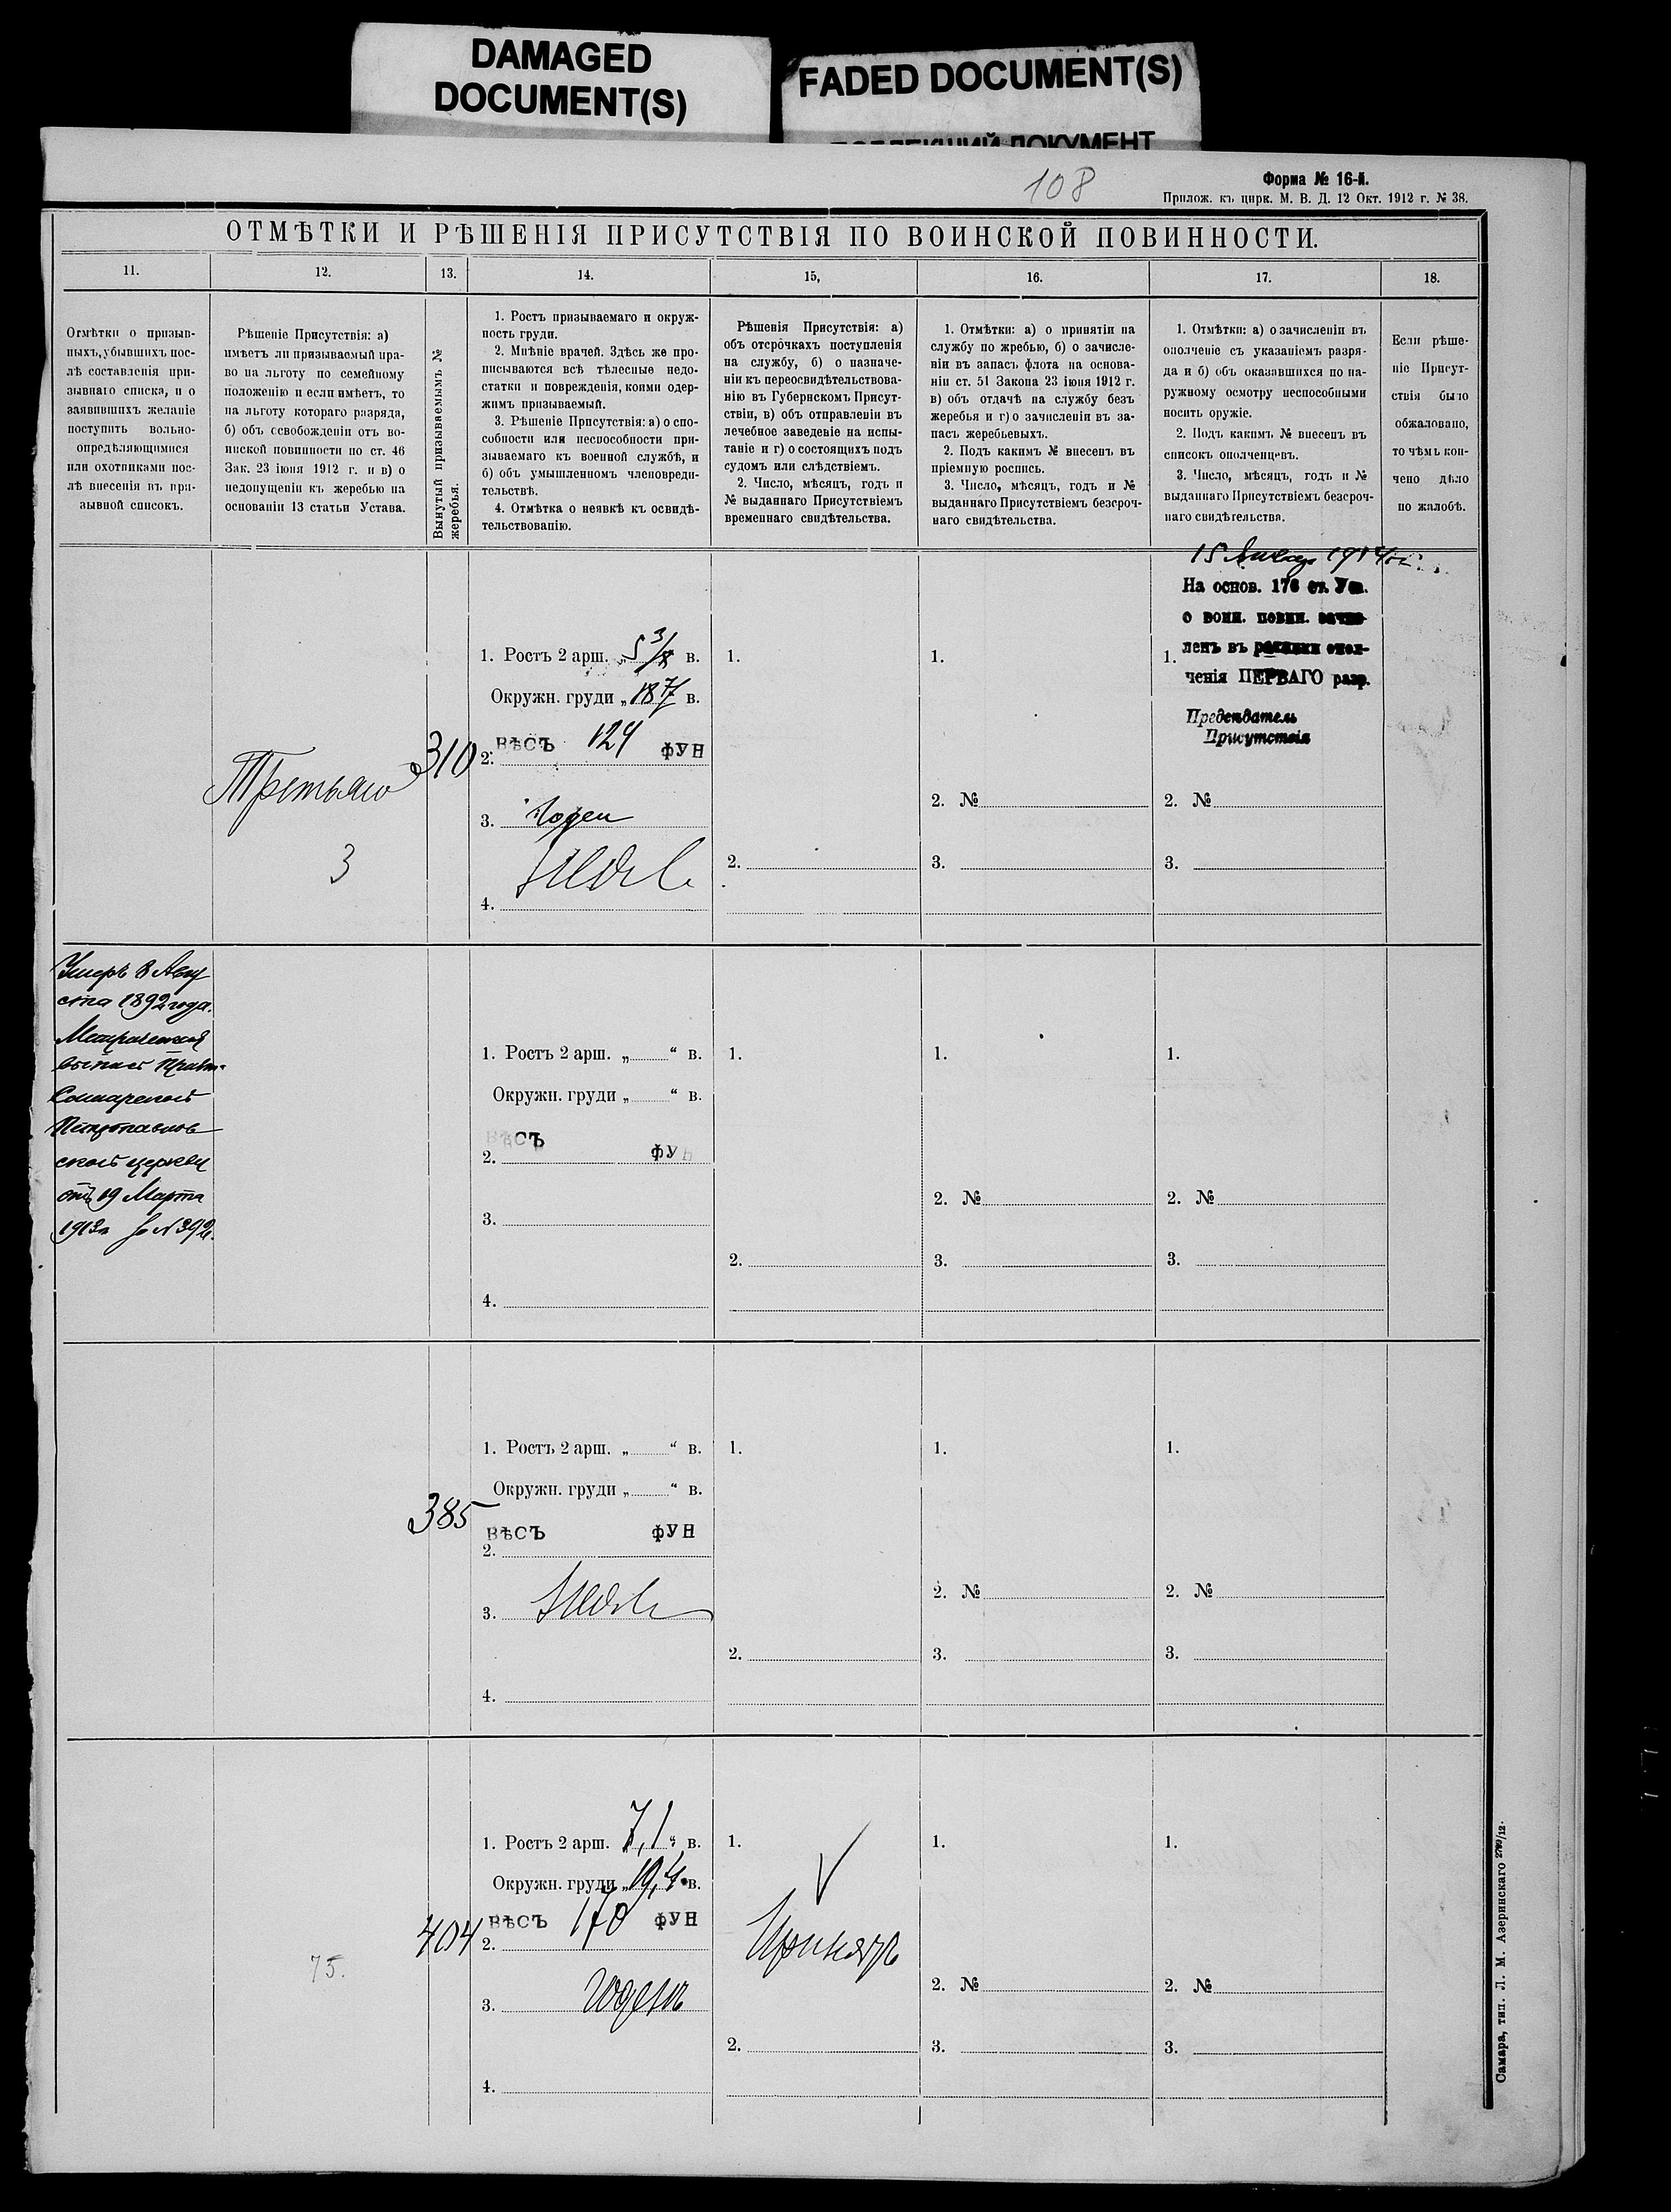 DAMAGED
DOCUMENT(S)
FADED DOCUMENT(S)
ДОКУМЕНТ
108
Форма № 16-й.
Прилож. къ цирк. М. В. Д. 12 Окт. 1912 г. № 38.
ОТМѢТКИ И РѢШЕНІЯ ПРИСУТСТВІЯ ПО ВОИНСКОЙ ПОВИННОСТИ.
11.
12.
13.
14.
15,
16.
17.
18.
Отмѣтки о призыв-
ныхъ, убывшихъ пос-
лѣ составленія при-
зывнаго списка, и о
заявившихъ желаніе
поступить вольно-
опредѣляющимися
или охотниками пос-
лѣ внесенія въ при-
зывной списокъ.
Рѣшеніе Присутствія: а)
имѣетъ ли призываемый пра-
во на льготу по семейному
положенію и если имѣетъ, то
на льготу котораго разряда,
б) объ освобожденіи отъ во-
инской повинности по ст. 46
Зак. 23 іюня 1912 г. и в) о
недопущеніи къ жеребью на
основаніи 13 статьи Устава.
Вынутый призываемымъ №
жеребья.
1. Ростъ призываемаго и окруж-
ность груди.
2. Мнѣніе врачей. Здѣсь же про-
писываются всѣ тѣлесные недо-
статки и поврежденія, коими одер-
жимъ призываемый.
3. Рѣшеніе Присутствія: а) о спо-
собности или неспособности при-
зываемаго къ военной службѣ, и
б) объ умышленномъ членовреди-
тельствѣ.
4. Отмѣтка о неявкѣ къ освидѣ-
тельствованію.
Рѣшенія Присутствія: а)
объ отсрочкахъ поступленія
на службу, б) о назначе-
ніи къ переосвидѣтельствова-
нію въ Губернскомъ Присут-
ствіи, в) объ отправленіи въ
лечебное заведеніе на испы-
таніе и г) о состоящихъ подъ
судомъ или слѣдствіемъ.
2. Число, мѣсяцъ, годъ и
№ выданнаго Присутствіемъ
временнаго свидѣтельства.
1. Отмѣтки: а) о принятіи на
службу по жребью, б) о зачисле-
ніи въ запасъ флота на основа-
ніи ст. 51 Закона 23 іюня 1912 г.
в) объ отдачѣ на службу безъ
жеребья и г) о зачисленіи въ за-
пасъ жеребьевыхъ.
2. Подъ какимъ № внесенъ въ
пріемную роспись.
3. Число, мѣсяцъ, годъ и №
выданнаго Присутствіемъ безсроч-
наго свидѣтельства.
1. Отмѣтки: а) о зачисленіи въ
ополченіе съ указаніемъ разря-
да и б) объ оказавшихся по на-
ружному осмотру неспособными
носить оружіе.
2. Подъ какимъ № внесенъ въ
списокъ ополченцевъ.
3. Число, мѣсяцъ, годъ и №
выданнаго Присутствіемъ безсроч-
наго свидѣтельства.
Если рѣше-
ніе Присут-
ствія было
обжаловано,
то чѣмъ кон-
чено дѣло
по жалобѣ.
Третьяго
3
310
1. Ростъ 2 арш. „5 3/8 в.
Окружн. груди „18 7/ в.
ВѢСЪ 124 ФУН
2.
3. Годен
4.
1.
2.
1.
2. №
3.
15 Января 1914 г.
На основ. 176 ст. Уст.
о воин. повин. зачис-
ленъ въ ратники опол-
ченія ПЕРВАГО разр.
Предсѣдатель
Присутствія
1.
2. №
3.
Умеръ 8 Авгу
ста 1892 года.
Метрическая
Самарской
Петропавлов
ской церкви
отъ 19 Марта
1913 г за № 392.
1. Ростъ 2 арш. „ “ в.
Окружн. груди „ “ в.
ВѢСЪ ФУН
2.
3.
4.
1.
2.
1.
2. №
3.
1.
2. №
3.
385
1. Ростъ 2 арш. „ “ в.
Окружн. груди „ “ в.
ВѢСЪ ФУН
2.
3.
4.
1.
2.
1.
2. №
3.
1.
2. №
3.
75.
404
1. Ростъ 2 арш. 7,1 “ в.
Окружн. груди „19,4 в.
ВѢСЪ 170 ФУН
2.
3. Годенъ
4.
1.
Принятъ
2.
1.
2. №
3.
1.
2. №
3.
Самара, тип. Л. М. Азеринскаго 2789/12.